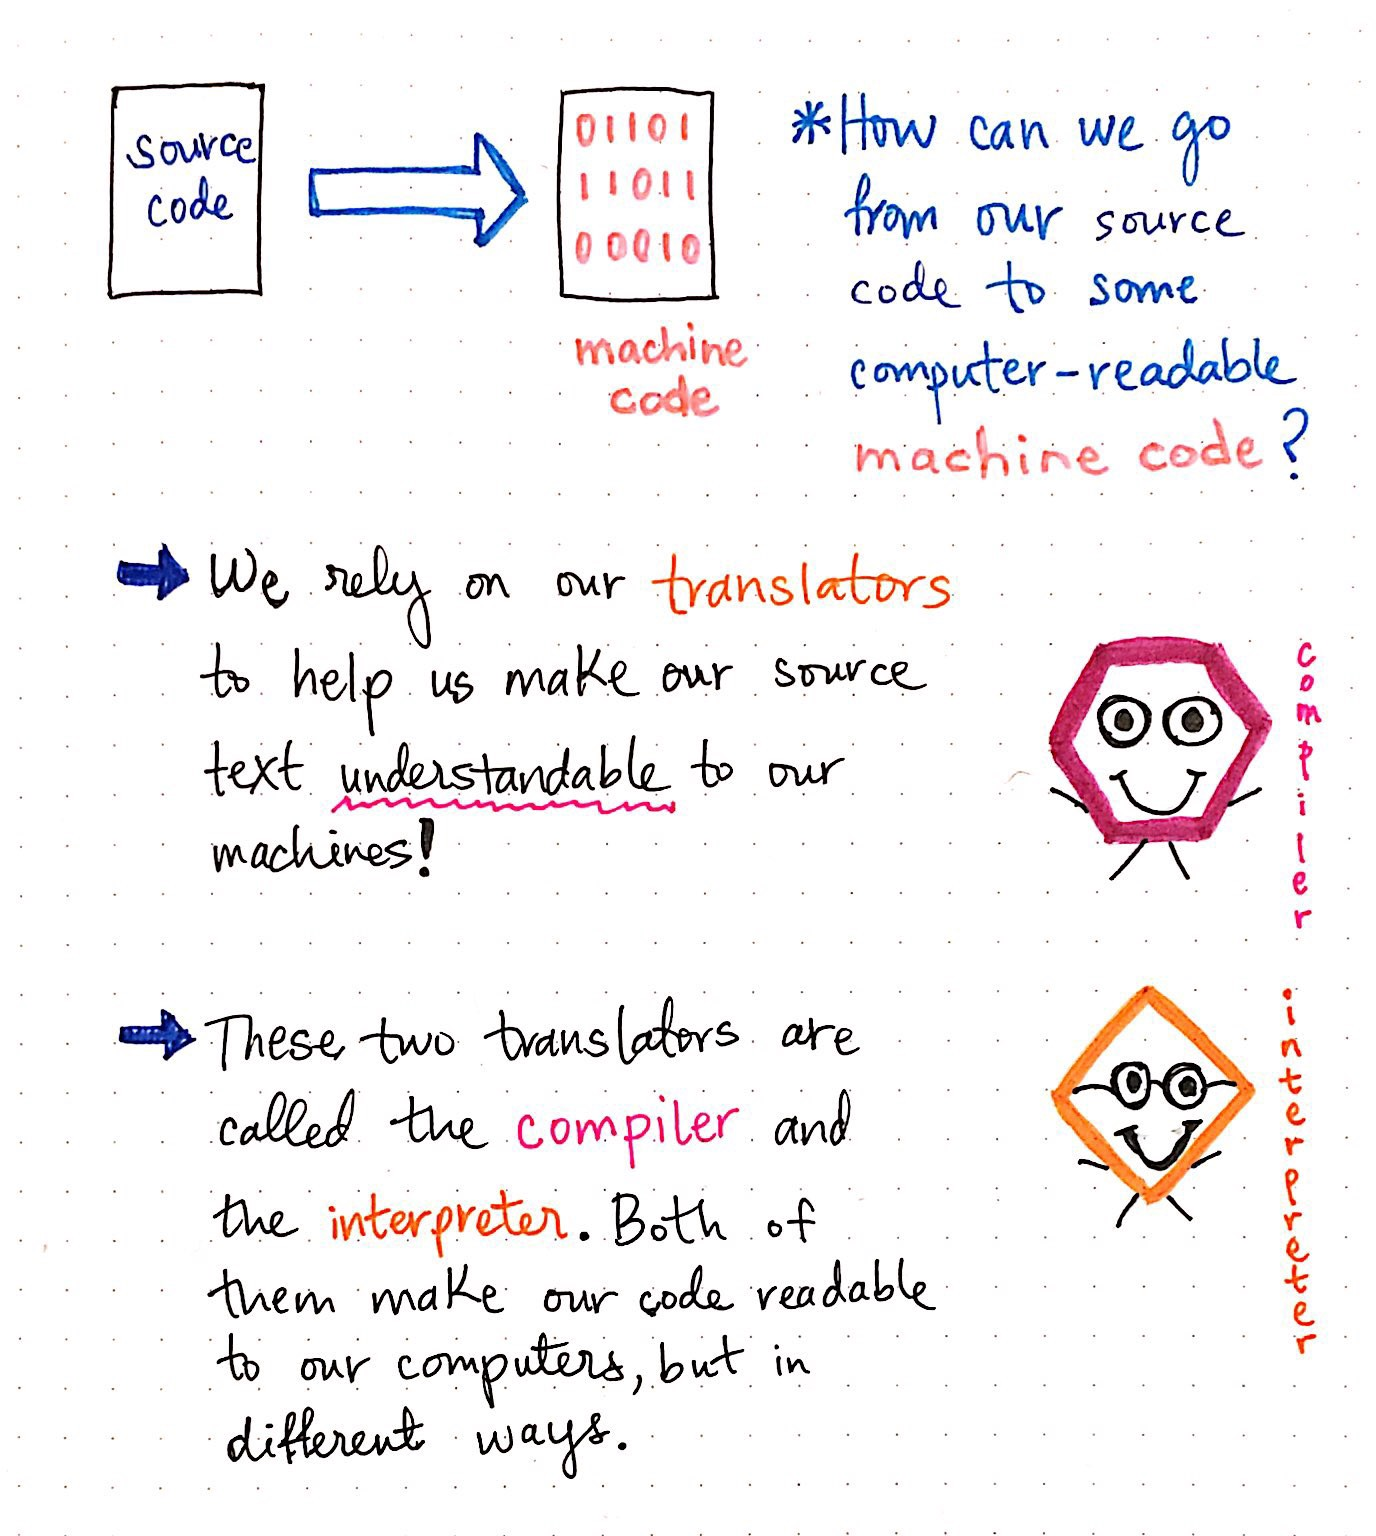 source
code
01101
11011
00010
machine
code
*How can we go
from our source
code to some
computer-readable
machine code?
We rely on our translators
to help us make our source
text understandable to our
machines!
compiler
These two translators are
called the compiler and
the interpreter. Both of
them make our code readable
to our computers, but in
different ways.
interpreter